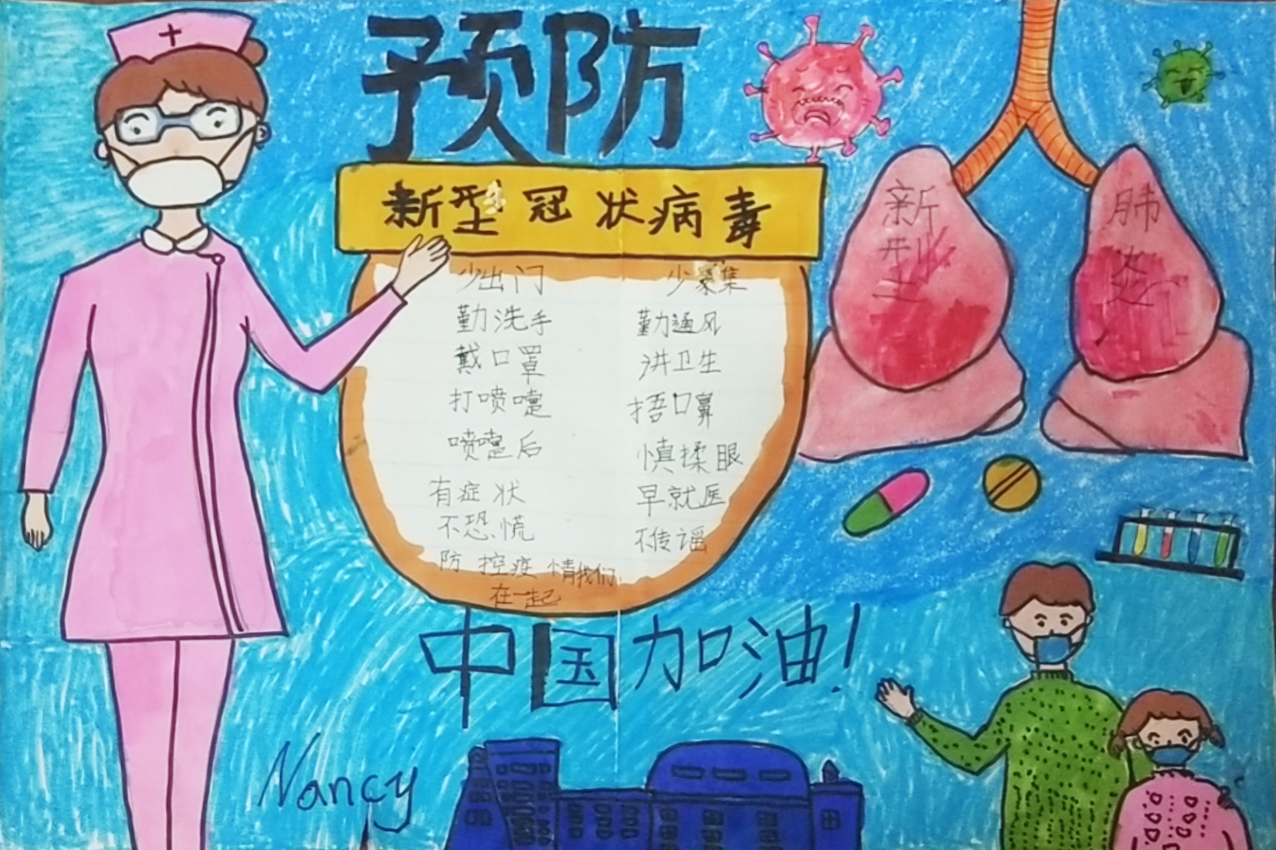 预防
新型冠状病毒
少出门 少聚集
勤洗手 勤通风
戴口罩 讲卫生
打喷嚏 捂口鼻
喷嚏后 慎揉眼
有症状 早就医
不恐慌 不传谣
防控疫情我们
在一起
中国加油!
Nancy
新型
肺炎